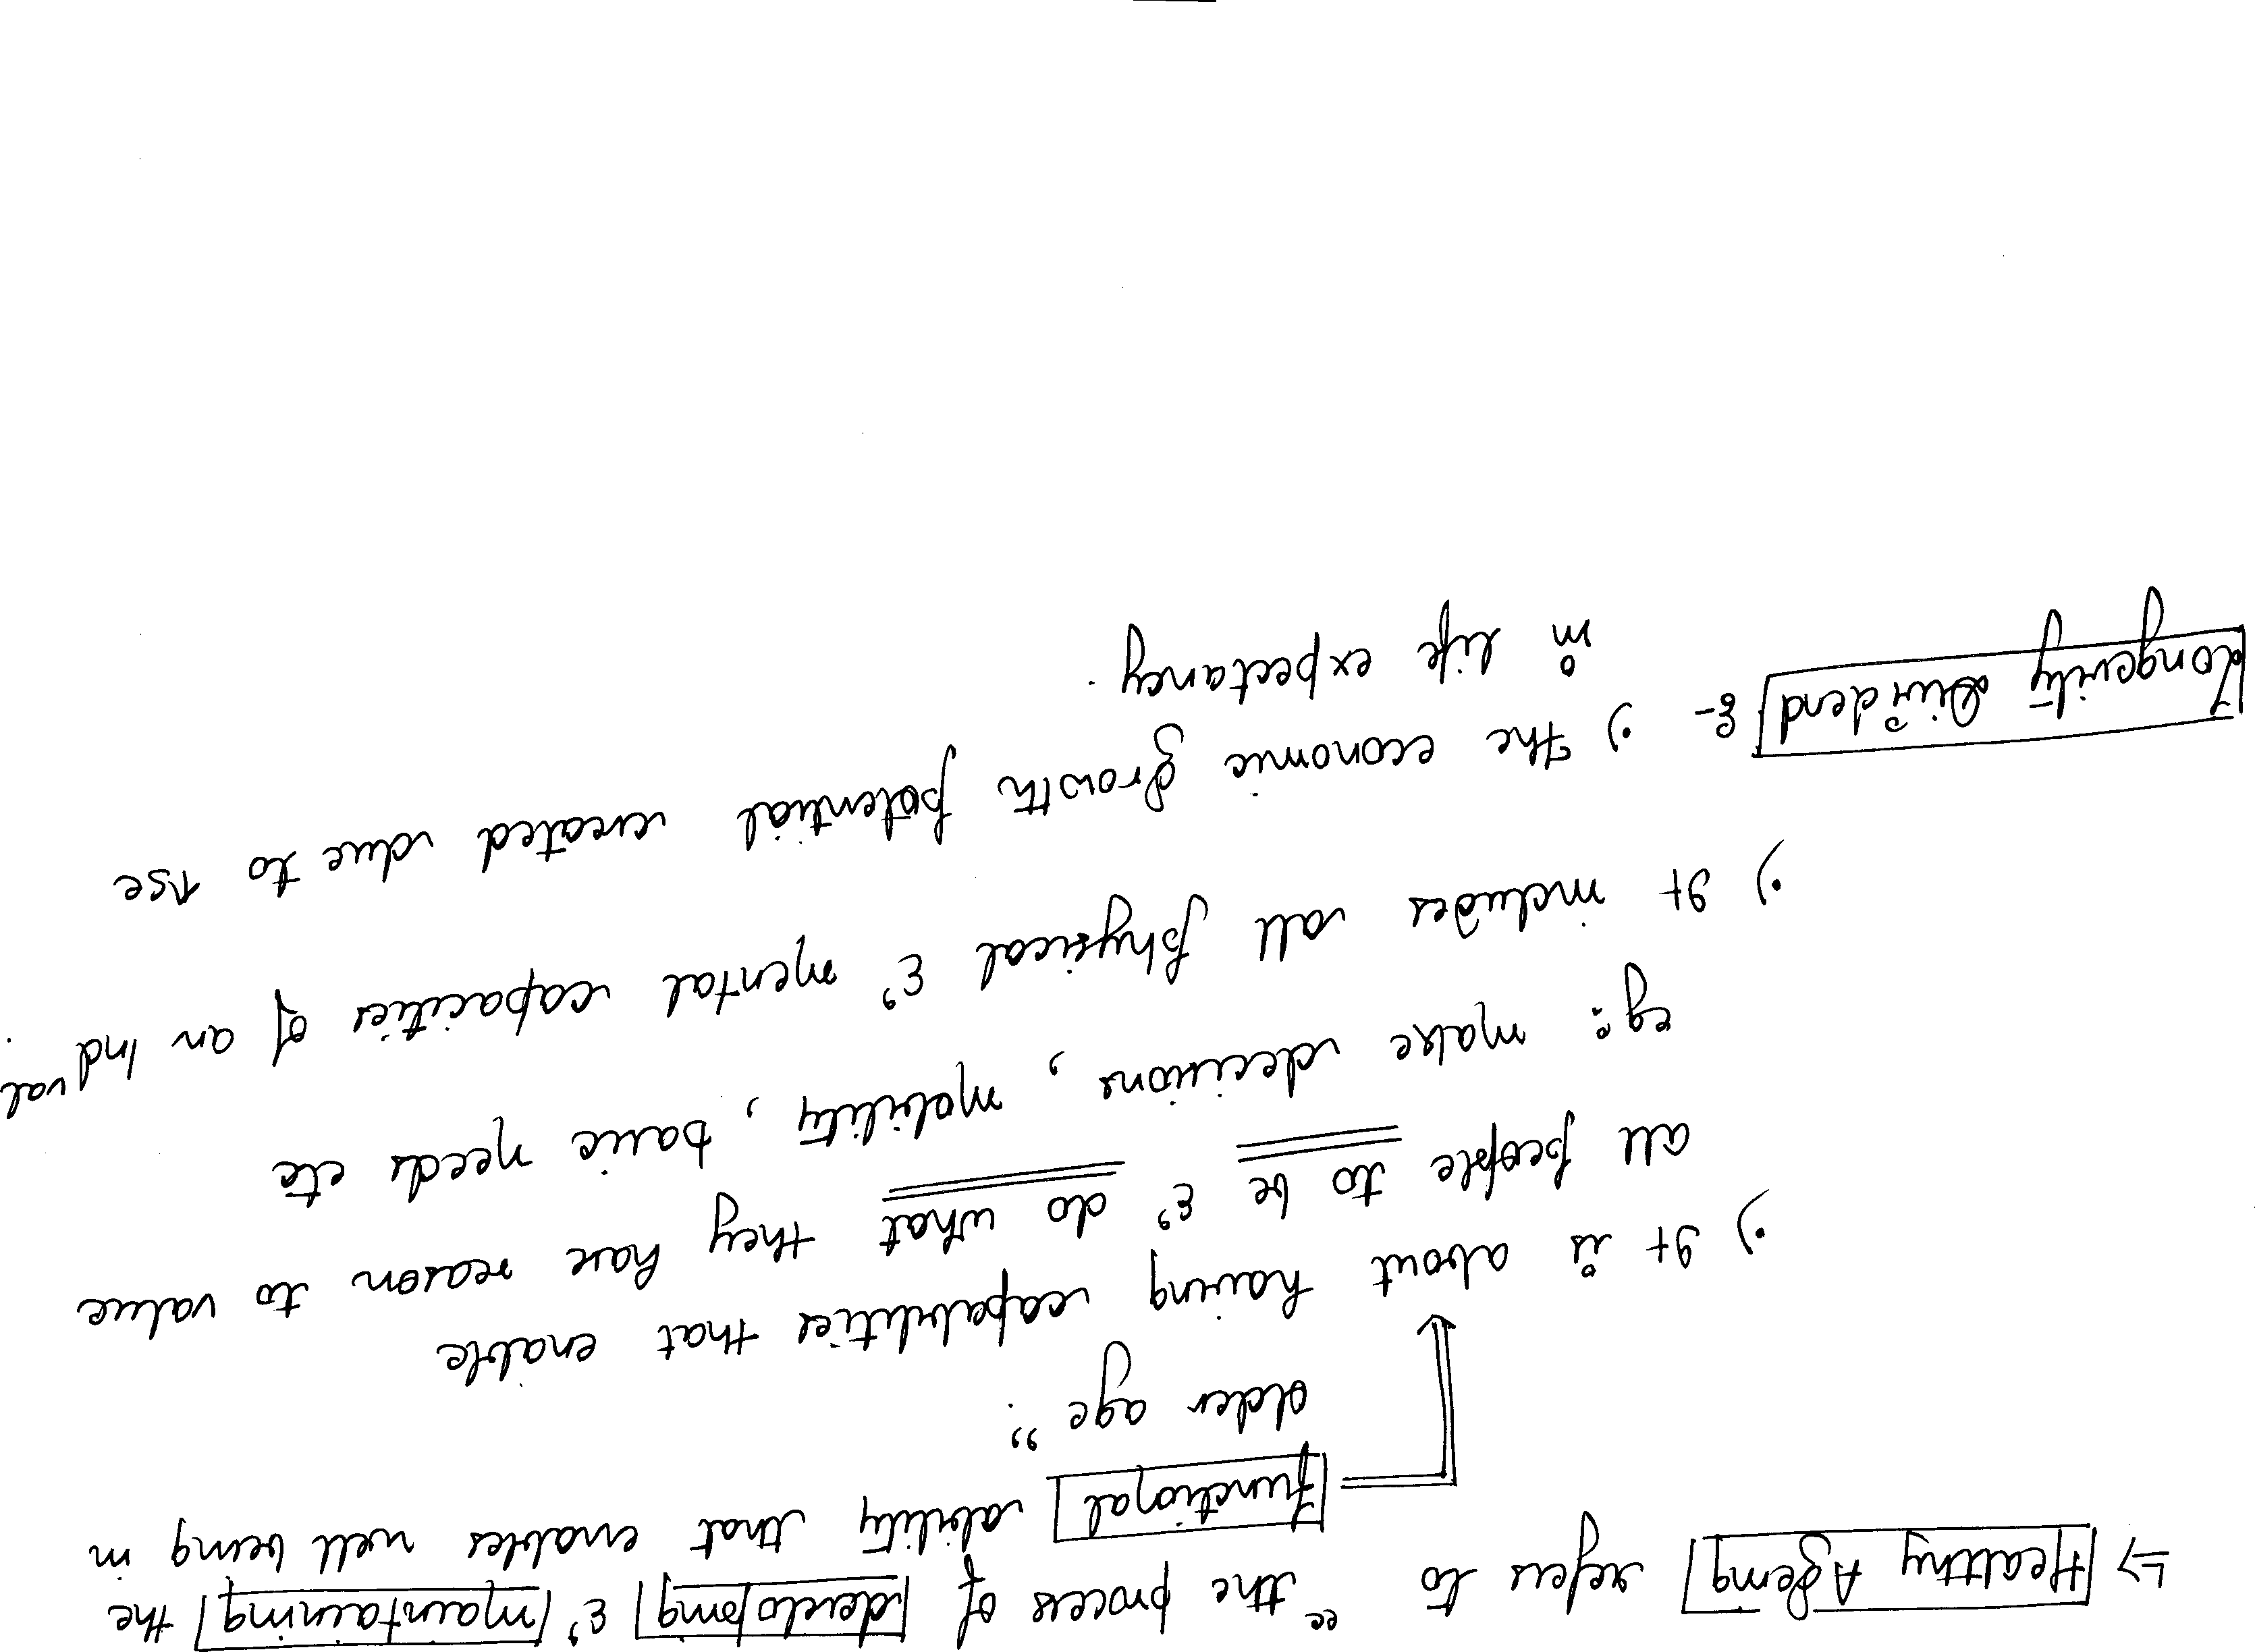 ↳ Healthy Ageing refers to "the process of developing & maintaining the
functional ability that enables well being in
older age".
•) It is about having capabilities that enable
all people to be & do what they have reason to value
eg: make decisions, mobility, basic needs etc
•) It includes all physical & mental capacities of an indval.
Longevity Dividend :- •) The economic growth potential created due to rise
in life expectancy.